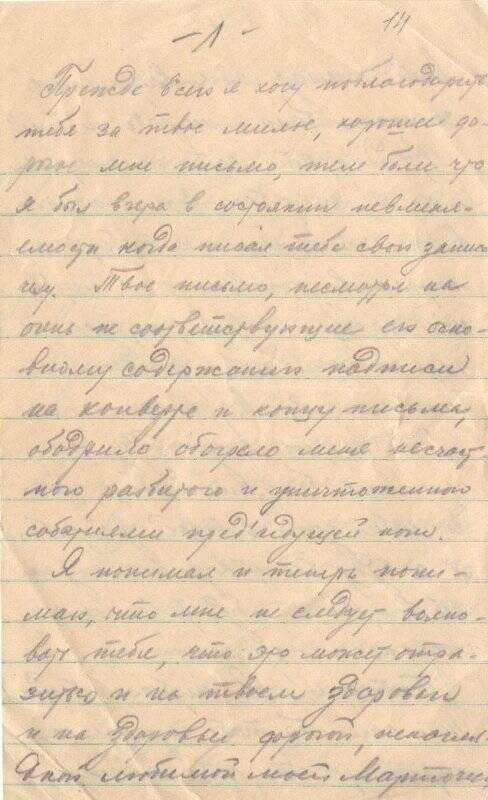 -1- 14
Прежде всего я хочу поблагодарить
тебя за твое милое, хорошее до-
рогое мне письмо, тем боли что
я был вчера в состоянии невменя-
емости когда писал тебе свою записо-
чку. Твое письмо, несмотря на
очень не соответствующие его осно-
вному содержанию надписи
на конверте и концу письма,
ободрило обогрело меня несчаст-
ного разбитого и уничтоженного
событиями пред'идущей ночи.
Я понимал и теперь пони-
маю, что мне не следует волно-
вать тебя, что это может отра-
зиться и на твоем здоровьи
и на здоровьи дорогой, ненагля-
дной любимой моей Марточки